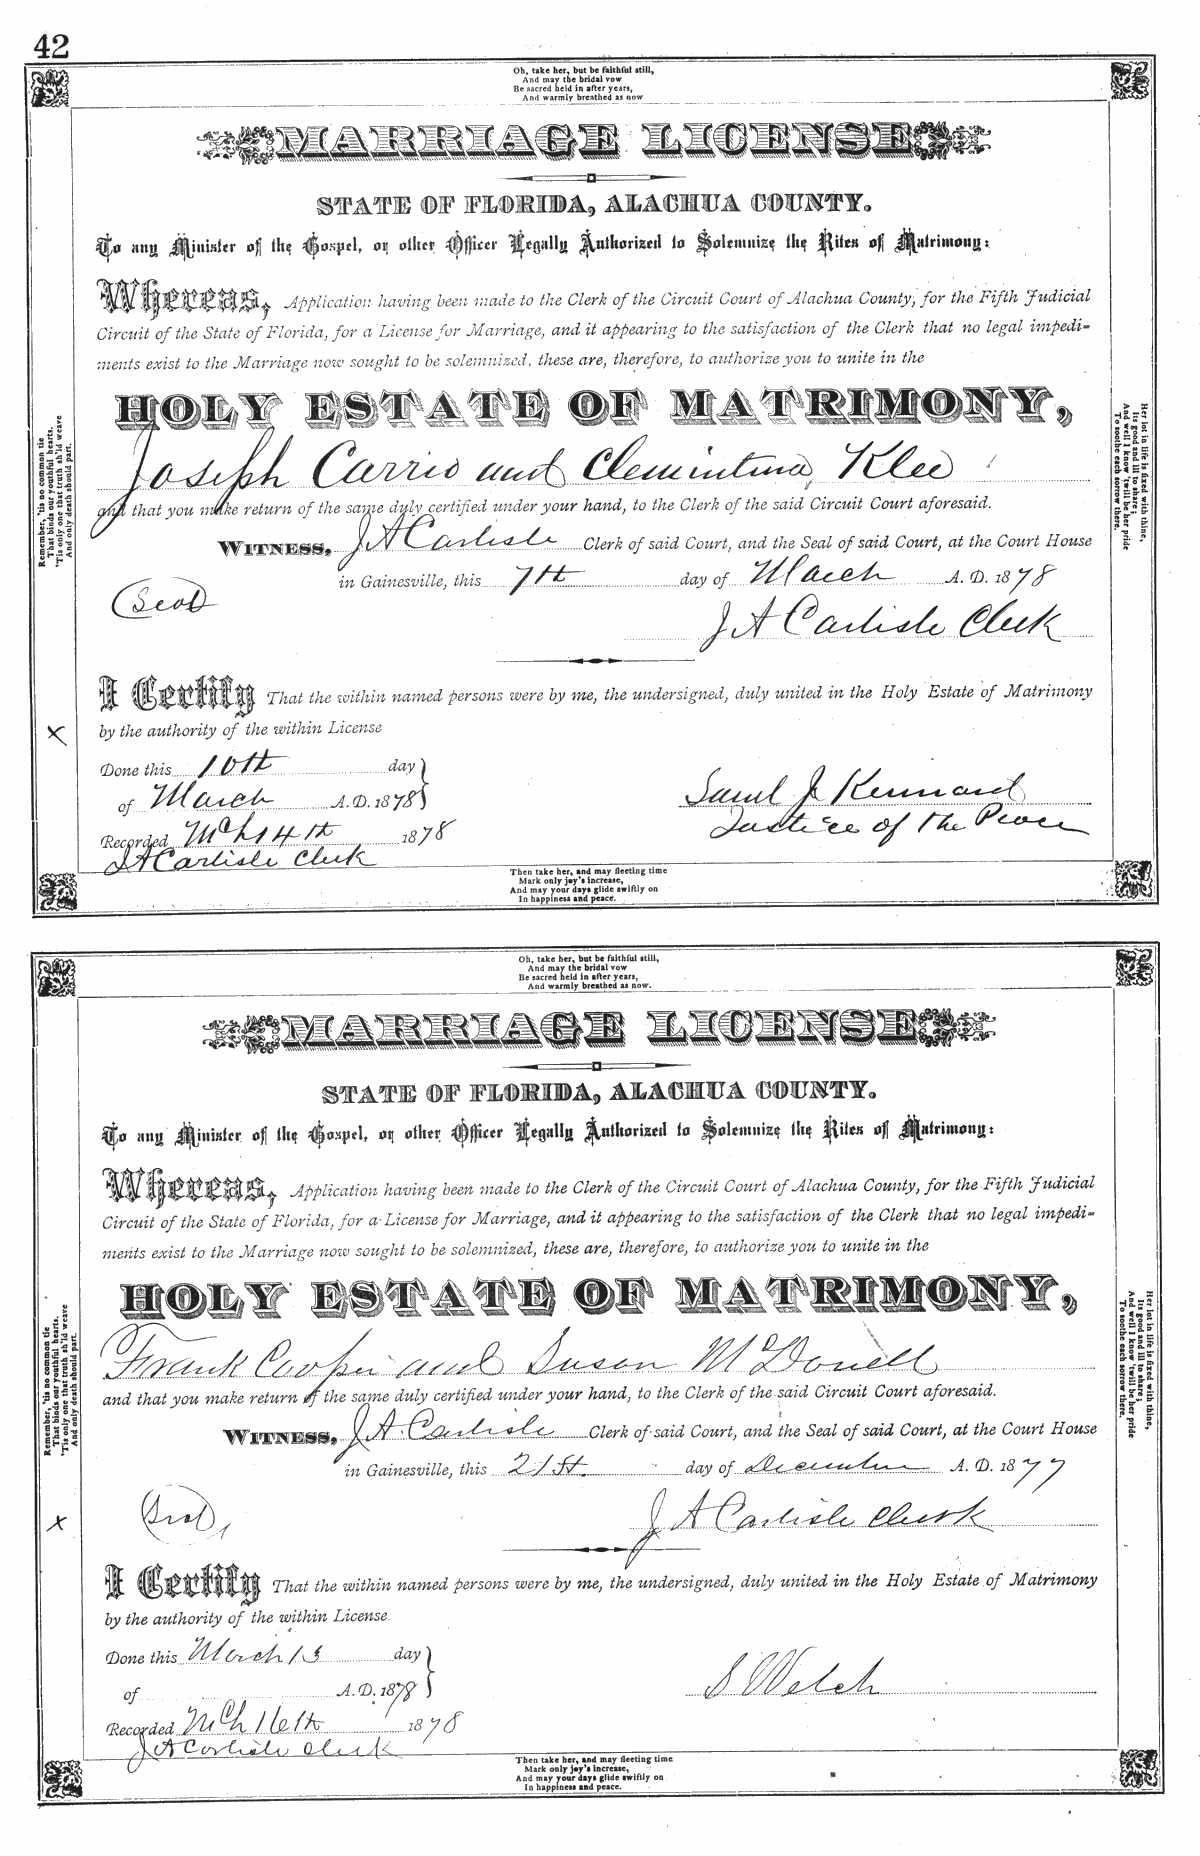 42
Oh, take her, but be faithful still,
And may the bridal vow
Be sacred held in after years,
And warmly breathed as now
MARRIAGE LICENSE
STATE OF FLORIDA, ALACHUA COUNTY.
To any Minister of the Gospel, or other Officer Legally Authorized to Solemnize the Rites of Matrimony:
Whereas, Application having been made to the Clerk of the Circuit Court of Alachua County, for the Fifth Judicial
Circuit of the State of Florida, for a License for Marriage, and it appearing to the satisfaction of the Clerk that no legal impedi-
ments exist to the Marriage now sought to be solemnized, these are, therefore, to authorize you to unite in the
HOLY ESTATE OF MATRIMONY,
Joseph Carrio and Clementina Klee
and that you make return of the same duly certified under your hand, to the Clerk of the said Circuit Court aforesaid.
WITNESS, J A Carlisle Clerk of said Court, and the Seal of said Court, at the Court House
in Gainesville, this 7th day of March A. D. 1878
(Seal)
J A Carlisle Clerk
I Certify That the within named persons were by me, the undersigned, duly united in the Holy Estate of Matrimony
by the authority of the within License
Done this 10th day
of March A. D. 1878
Saml J Kennard
Justice of the Peace
Recorded Mch 14th 1878
J A Carlisle Clerk
X
Remember, 'tis no common tie
That binds our youthful hearts.
'Tis only one that truth sh'ld weave
And only death should part.
Her lot in life is fixed with thine,
Its good and ill to share;
And well I know 'twill be her pride
To soothe each sorrow there.
Then take her, and may fleeting time
Mark only joy's increase,
And may your days glide swiftly on
In happiness and peace.
Oh, take her, but be faithful still,
And may the bridal vow
Be sacred held in after years,
And warmly breathed as now.
MARRIAGE LICENSE
STATE OF FLORIDA, ALACHUA COUNTY.
To any Minister of the Gospel, or other Officer Legally Authorized to Solemnize the Rites of Matrimony:
Whereas, Application having been made to the Clerk of the Circuit Court of Alachua County, for the Fifth Judicial
Circuit of the State of Florida, for a License for Marriage, and it appearing to the satisfaction of the Clerk that no legal impedi-
ments exist to the Marriage now sought to be solemnized, these are, therefore, to authorize you to unite in the
HOLY ESTATE OF MATRIMONY,
Frank Cooper and Susan McDonell
and that you make return of the same duly certified under your hand, to the Clerk of the said Circuit Court aforesaid.
WITNESS, J A Carlisle Clerk of said Court, and the Seal of said Court, at the Court House
in Gainesville, this 21st. day of December A. D. 1877
(Seal)
J A Carlisle Clerk
I Certify That the within named persons were by me, the undersigned, duly united in the Holy Estate of Matrimony
by the authority of the within License
Done this March 13 day
of A. D. 1878
S Welch
Recorded Mch 16th 1878
J A Carlisle Clerk
X
Remember, 'tis no common tie
That binds our youthful hearts.
'Tis only one that truth sh'ld weave
And only death should part.
Her lot in life is fixed with thine,
Its good and ill to share;
And well I know 'twill be her pride
To soothe each sorrow there.
Then take her, and may fleeting time
Mark only joy's increase,
And may your days glide swiftly on
In happiness and peace.